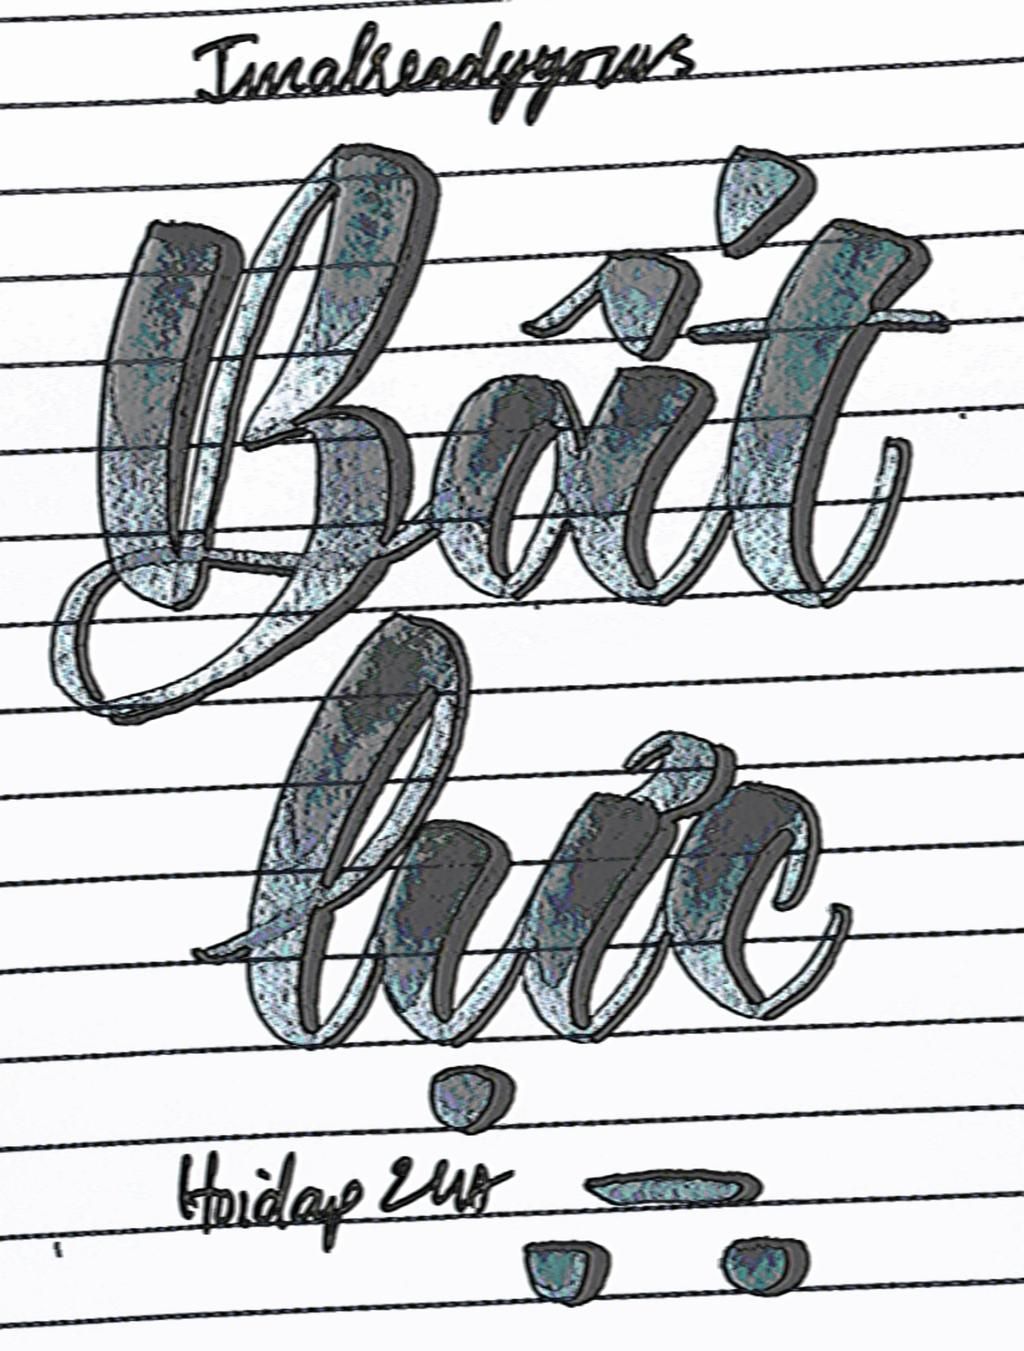 Imalreadyyours
Bất
lực
Hoidap 247